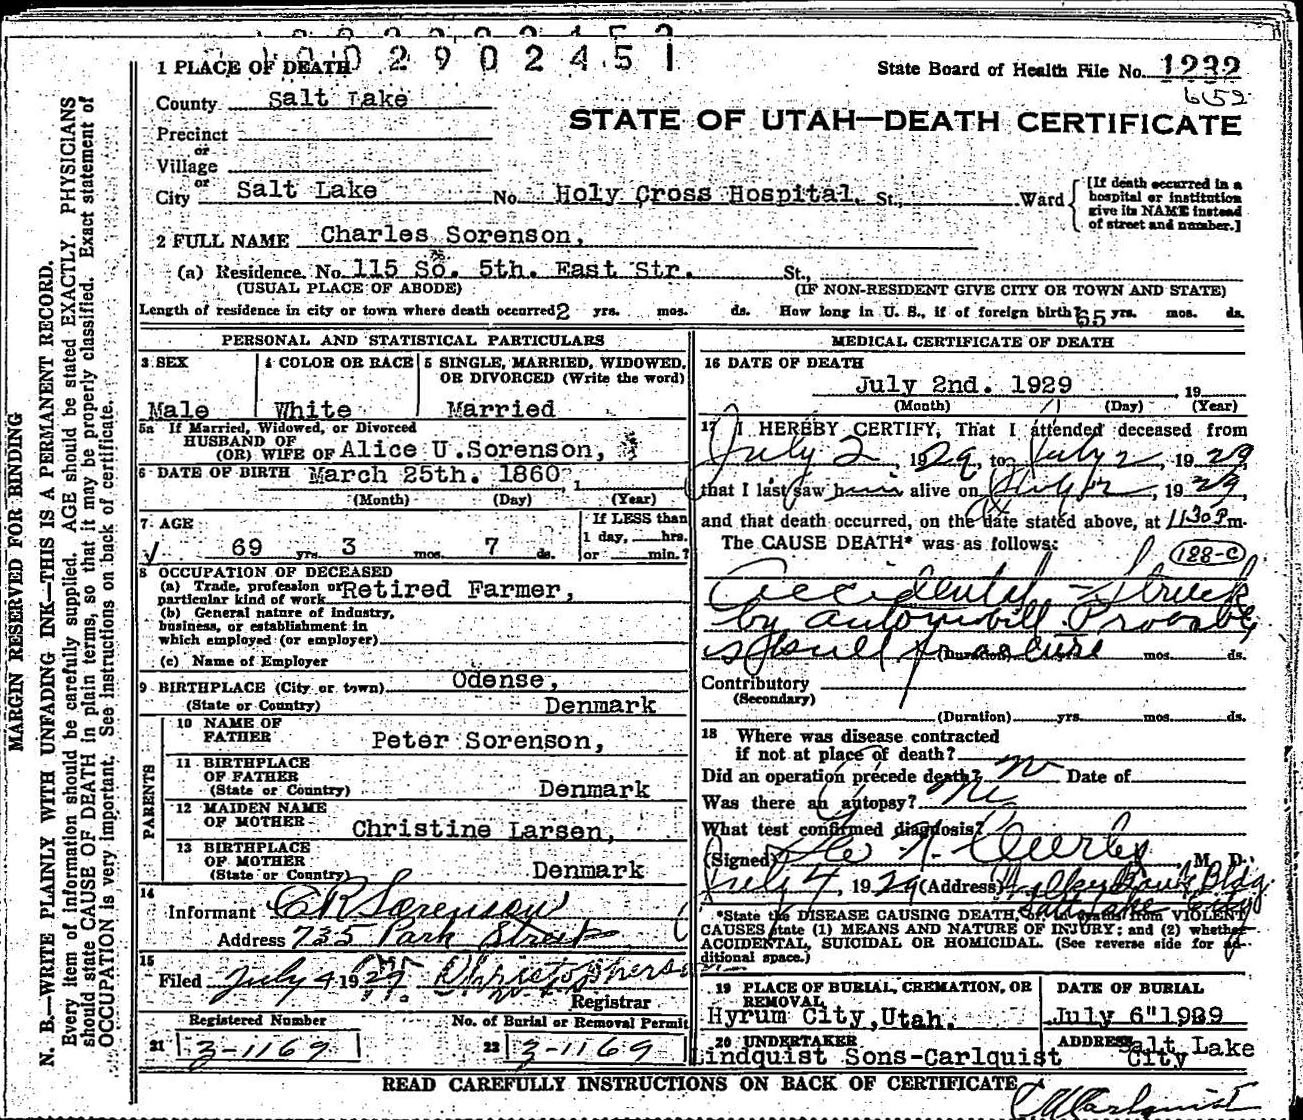 290 2451
1 PLACE OF DEATH
State Board of Health File No. 1232
County Salt Lake
Precinct
or
Village
or
City Salt Lake No. Holy Cross Hospital. St., Ward
[If death occurred in a hospital or institution give its NAME instead of street and number.]
STATE OF UTAH—DEATH CERTIFICATE
2 FULL NAME Charles Sorenson,
(a) Residence. No. 115 So. 5th. East Str. St.,
(USUAL PLACE OF ABODE) (IF NON-RESIDENT GIVE CITY OR TOWN AND STATE)
Length of residence in city or town where death occurred 2 yrs. mos. ds. How long in U. S., if of foreign birth? 65 yrs. mos. ds.
PERSONAL AND STATISTICAL PARTICULARS
3 SEX
Male
4 COLOR OR RACE
White
5 SINGLE, MARRIED, WIDOWED,
OR DIVORCED (Write the word)
Married
5a If Married, Widowed, or Divorced
HUSBAND OF
(OR) WIFE OF Alice U.Sorenson,
6 DATE OF BIRTH March 25th. 1860, 1
(Month) (Day) (Year)
7 AGE
69 yrs. 3 mos. 7 ds.
If LESS than
1 day, hrs.
or min.?
8 OCCUPATION OF DECEASED
(a) Trade, profession or
particular kind of work Retired Farmer,
(b) General nature of industry,
business, or establishment in
which employed (or employer)
(c) Name of Employer
9 BIRTHPLACE (City or town) Odense,
(State or Country) Denmark
PARENTS
10 NAME OF
FATHER Peter Sorenson,
11 BIRTHPLACE
OF FATHER
(State or Country) Denmark
12 MAIDEN NAME
OF MOTHER Christine Larsen,
13 BIRTHPLACE
OF MOTHER
(State or Country) Denmark
14
Informant C R Sorenson
Address 735 Park Street
15
Filed July 4 1929
Registrar
Registered Number
21 3-1169
No. of Burial or Removal Permit
22 3-1169
MEDICAL CERTIFICATE OF DEATH
16 DATE OF DEATH
July 2nd. 1929 19
(Month) (Day) (Year)
17 I HEREBY CERTIFY, That I attended deceased from
July 2, 1929, to July 2, 1929,
that I last saw him alive on July 2, 1929,
and that death occurred, on the date stated above, at 1130 Pm.
The CAUSE DEATH* was as follows:
188-c
Accidental - Struck
by automobill. Probable
skull fracture
(Duration) mos. ds.
Contributory
(Secondary)
(Duration) yrs. mos. ds.
18 Where was disease contracted
if not at place of death?
Did an operation precede death? no Date of
Was there an autopsy? no
What test confirmed diagnosis?
(Signed) M. D.
July 4, 1929 (Address) Walker Bank Bldg.
Salt Lake City
*State the DISEASE CAUSING DEATH, or in deaths from VIOLENT
CAUSES state (1) MEANS AND NATURE OF INJURY; and (2) whether
ACCIDENTAL, SUICIDAL OR HOMICIDAL. (See reverse side for ad-
ditional space.)
19 PLACE OF BURIAL, CREMATION, OR
REMOVAL
Hyrum City,Utah.
DATE OF BURIAL
July 6"1929
20 UNDERTAKER
Lindquist Sons-Carlquist
ADDRESS Salt Lake
City
READ CAREFULLY INSTRUCTIONS ON BACK OF CERTIFICATE
MARGIN RESERVED FOR BINDING
N. B.—WRITE PLAINLY WITH UNFADING INK—THIS IS A PERMANENT RECORD.
Every item of information should be carefully supplied. AGE should be stated EXACTLY. PHYSICIANS
should state CAUSE OF DEATH in plain terms, so that it may be properly classified. Exact statement of
OCCUPATION is very important. See instructions on back of certificate.